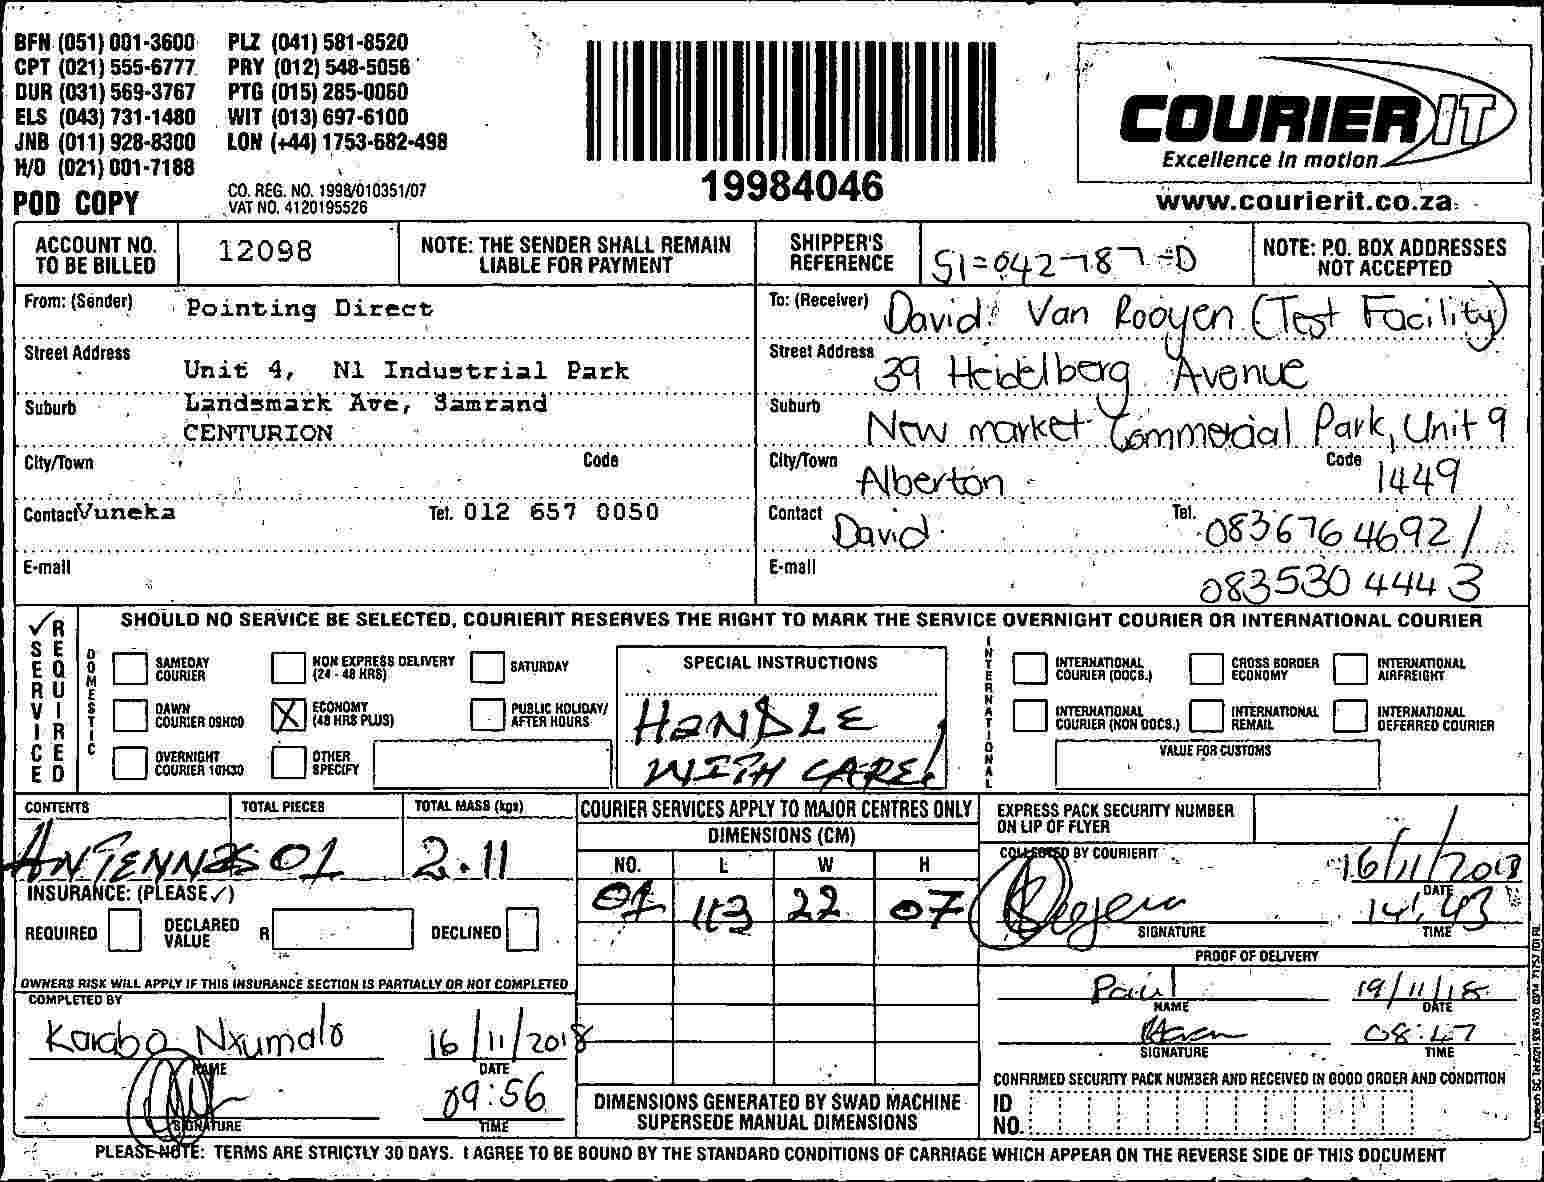 BFN (051) 001-3600 PLZ (041) 581-8520
CPT (021) 555-6777 PRY (012) 548-5056
DUR (031) 569-3767 PTG (015) 285-0060
ELS (043) 731-1480 WIT (013) 697-6100
JNB (011) 928-8300 LON (+44) 1753-682-498
H/O (021) 001-7188
POD COPY
CO. REG. NO. 1998/010351/07
VAT NO. 4120195526
19984046
COURIERIT
Excellence in motion
www.courierit.co.za
ACCOUNT NO. TO BE BILLED
12098
NOTE: THE SENDER SHALL REMAIN LIABLE FOR PAYMENT
SHIPPER'S REFERENCE
NOTE: P.O. BOX ADDRESSES NOT ACCEPTED
From: (Sender) Pointing Direct
Street Address
Unit 4, N1 Industrial Park
Suburb Landsmark Ave, Samrand
CENTURION
City/Town Code
Contact Vuneka Tel. 012 657 0050
E-mail
To: (Receiver) David Van Rooyen (Test Facility)
Street Address 39 Heidelberg Avenue
Suburb
New market Commercial Park, Unit 9
City/Town Alberton Code 1449
Contact David Tel. 083 676 4692 /
E-mail 083 530 4443
SERVICE REQUIRED
DOMESTIC
SHOULD NO SERVICE BE SELECTED, COURIERIT RESERVES THE RIGHT TO MARK THE SERVICE OVERNIGHT COURIER OR INTERNATIONAL COURIER
SAMEDAY COURIER
NON EXPRESS DELIVERY (24 - 48 HRS)
SATURDAY
DAWN COURIER 09H00
X ECONOMY (48 HRS PLUS)
PUBLIC HOLIDAY/ AFTER HOURS
OVERNIGHT COURIER 10H30
OTHER SPECIFY
SPECIAL INSTRUCTIONS
HANDLE
WITH CARE!
INTERNATIONAL
INTERNATIONAL COURIER (DOCS.)
CROSS BORDER ECONOMY
INTERNATIONAL AIRFREIGHT
INTERNATIONAL COURIER (NON DOCS.)
INTERNATIONAL REMAIL
INTERNATIONAL DEFERRED COURIER
VALUE FOR CUSTOMS
CONTENTS TOTAL PIECES TOTAL MASS (kgs)
ANTENNAS 01 2.11
INSURANCE: (PLEASE ✓)
REQUIRED DECLARED VALUE R DECLINED
OWNERS RISK WILL APPLY IF THIS INSURANCE SECTION IS PARTIALLY OR NOT COMPLETED
COMPLETED BY
Karabo Nxumalo 16/11/2018
NAME DATE
09:56
SIGNATURE TIME
COURIER SERVICES APPLY TO MAJOR CENTRES ONLY
DIMENSIONS (CM)
NO. L W H
01 113 22 07
DIMENSIONS GENERATED BY SWAD MACHINE SUPERSEDE MANUAL DIMENSIONS
EXPRESS PACK SECURITY NUMBER ON LIP OF FLYER
COLLECTED BY COURIERIT
16/11/2018
DATE
14:43
SIGNATURE TIME
PROOF OF DELIVERY
Paul 19/11/18
NAME DATE
08:47
SIGNATURE TIME
CONFIRMED SECURITY PACK NUMBER AND RECEIVED IN GOOD ORDER AND CONDITION
ID NO.
PLEASE NOTE: TERMS ARE STRICTLY 30 DAYS. I AGREE TO BE BOUND BY THE STANDARD CONDITIONS OF CARRIAGE WHICH APPEAR ON THE REVERSE SIDE OF THIS DOCUMENT